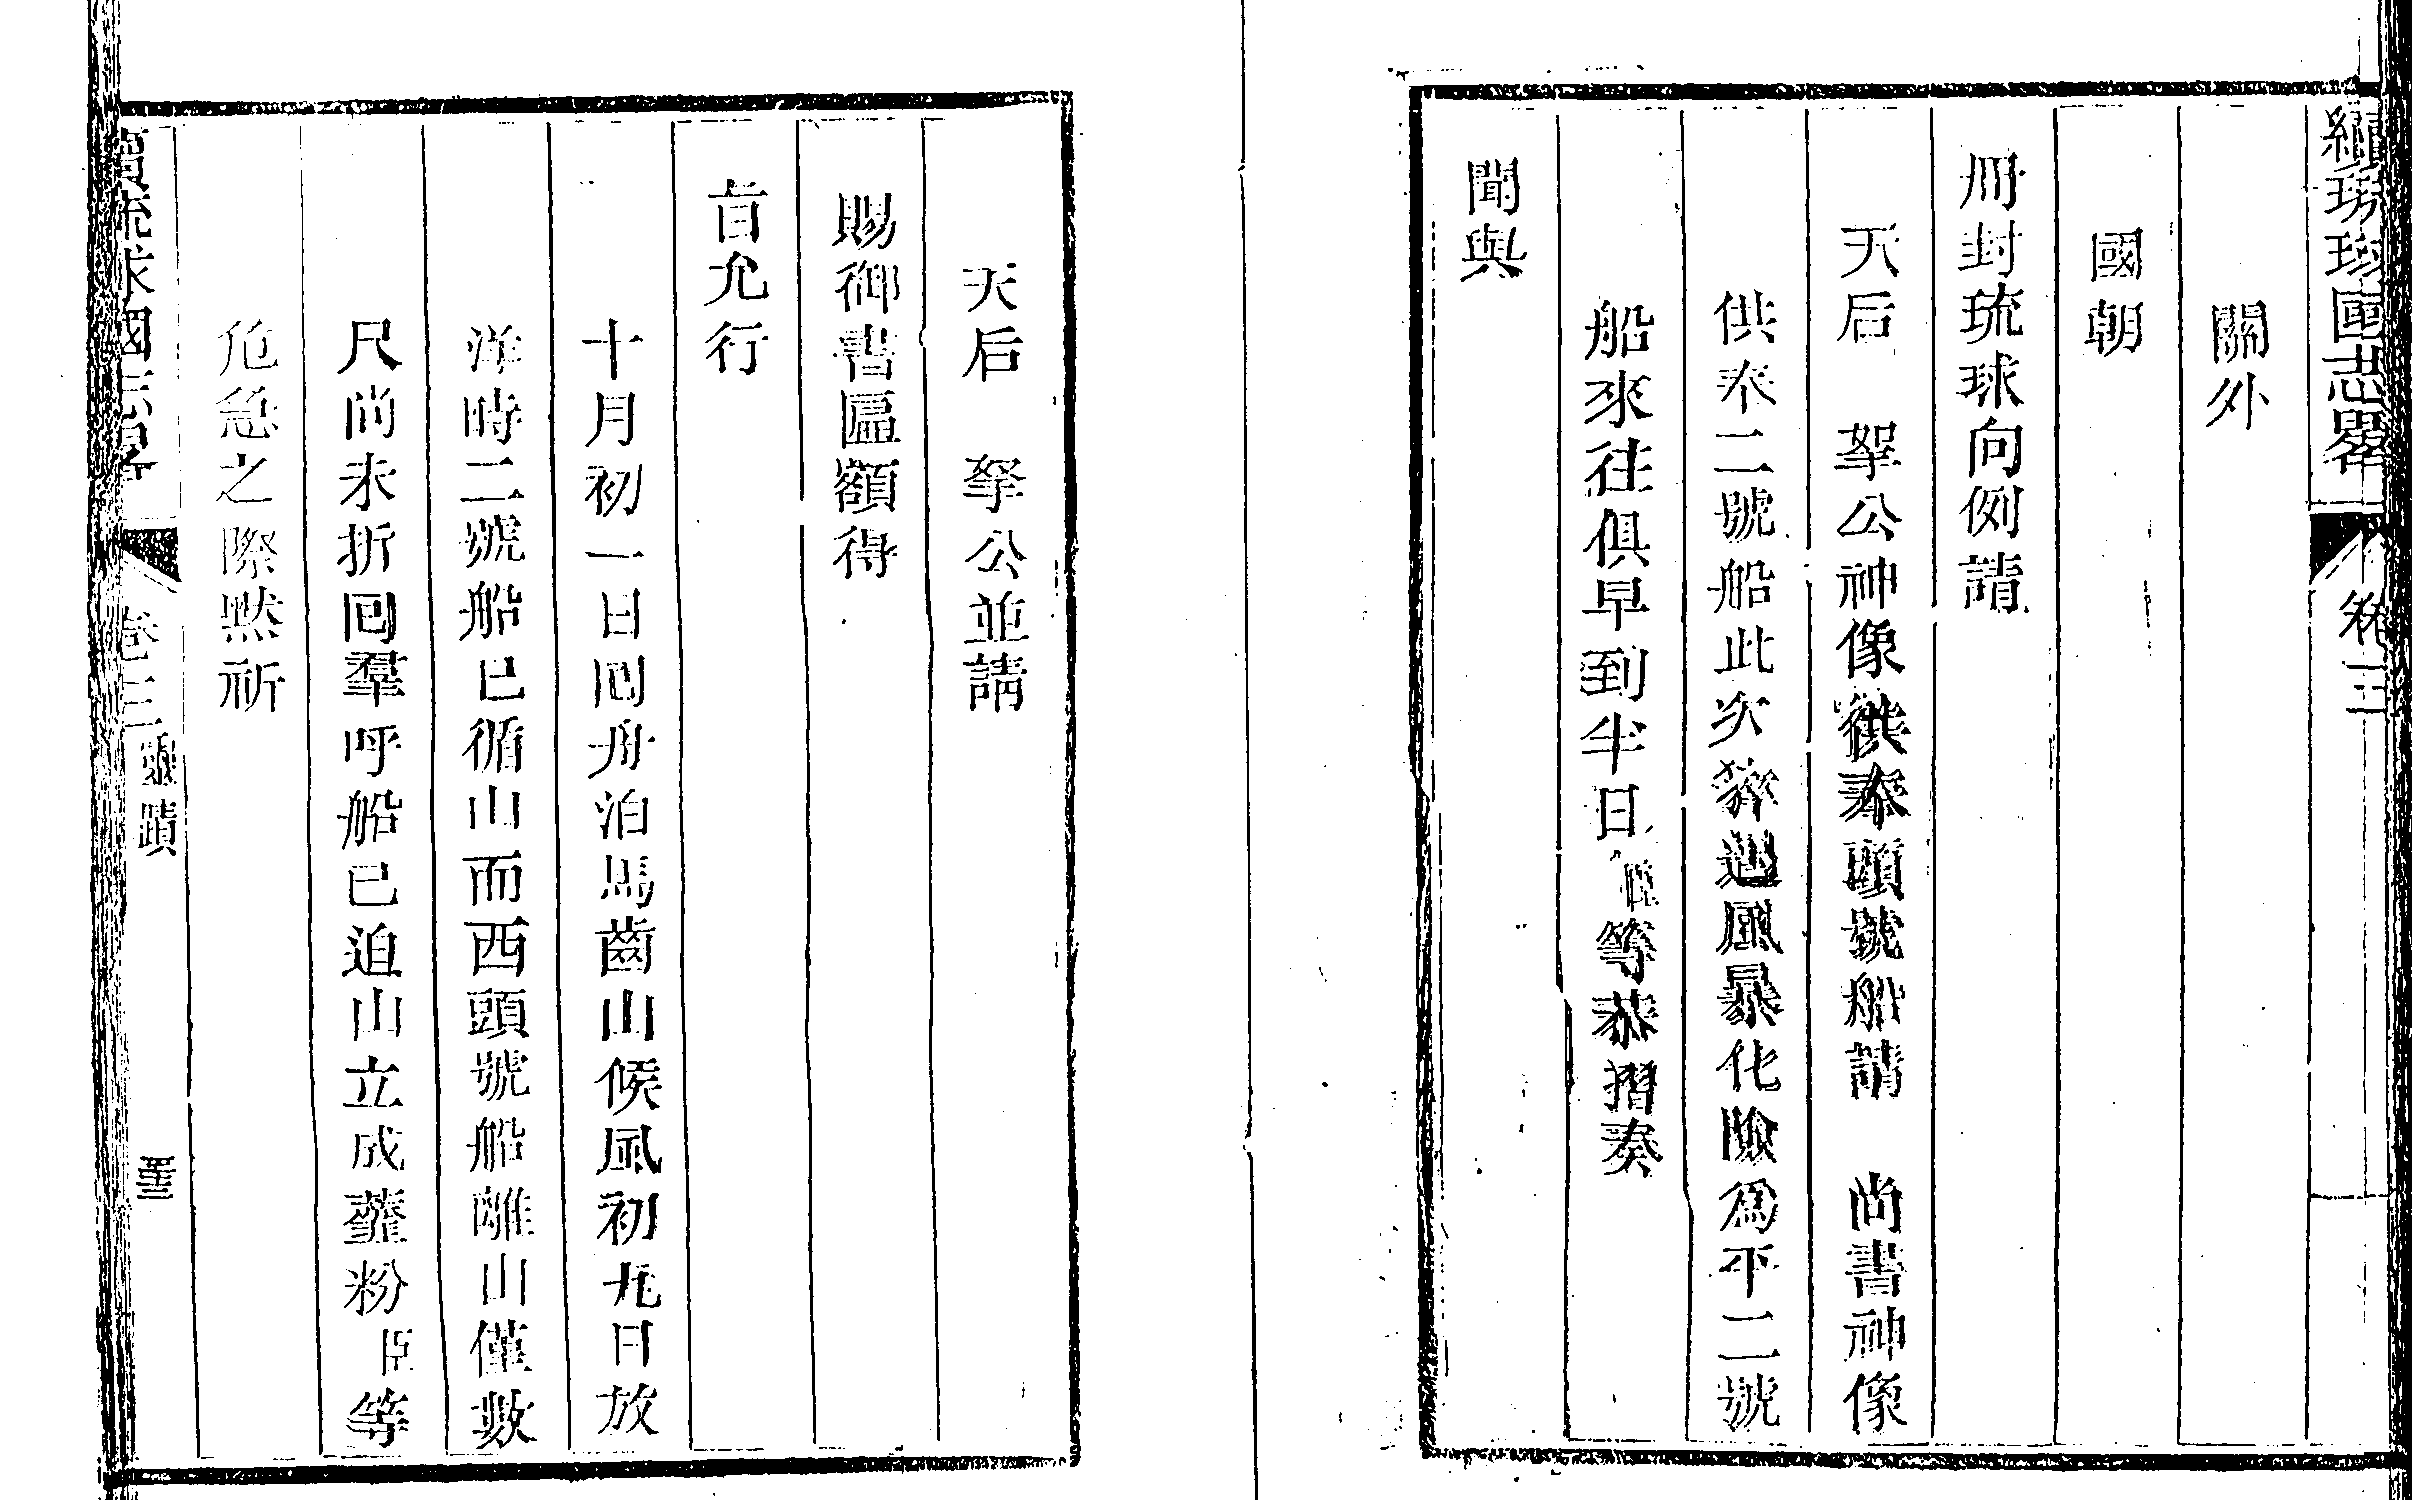 續琉球國志畧 卷三
關外
國朝
冊封琉球向例請
天后 拏公神像供奉頭號船請 尚書神像
供奉二號船此次猝遇風暴化險為平二號
船來往俱早到半日臣等恭摺奏
聞與
天后 拏公並請
賜御書匾額得
旨允行
十月初一日回舟泊馬齒山候風初九日放
洋時二號船已循山而西頭號船離山僅數
尺尚未折回羣呼船已迫山立成虀粉臣等
危急之際默祈
續琉球國志畧 卷三 靈蹟